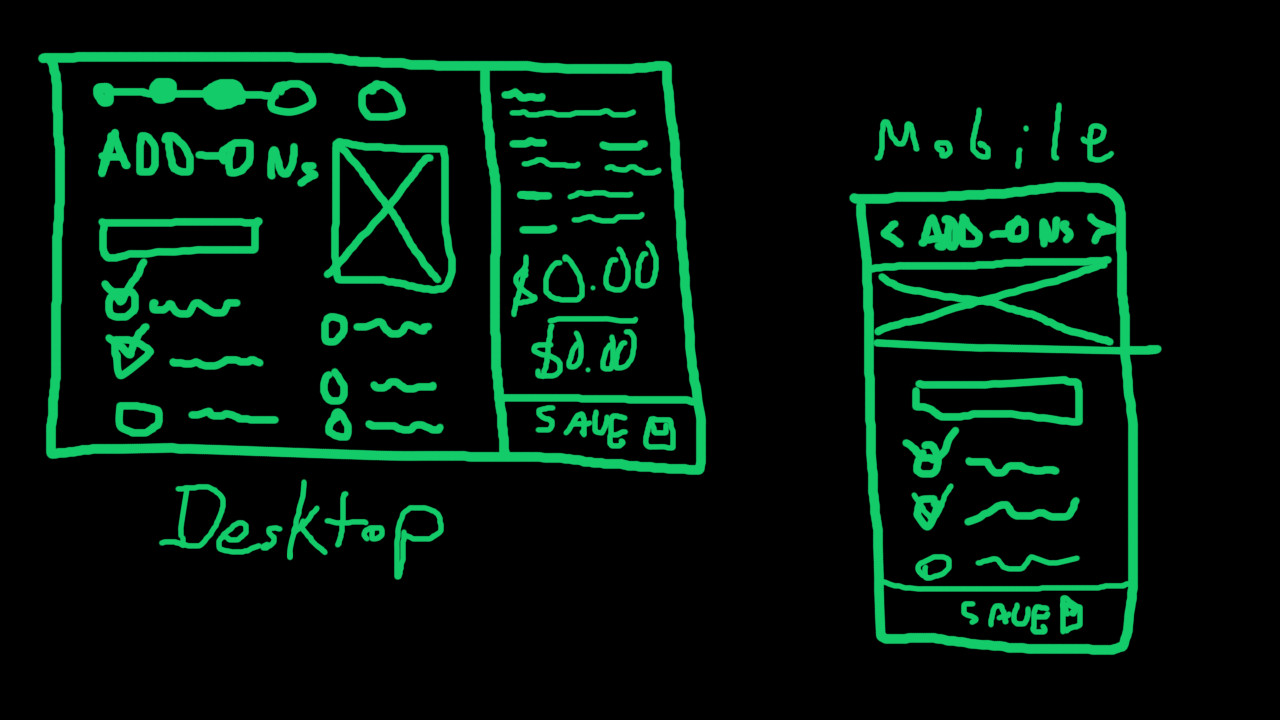 ADD-ONs
$0.00
$0.00
SAVE
Desktop
Mobile
< ADD-ONs >
SAVE